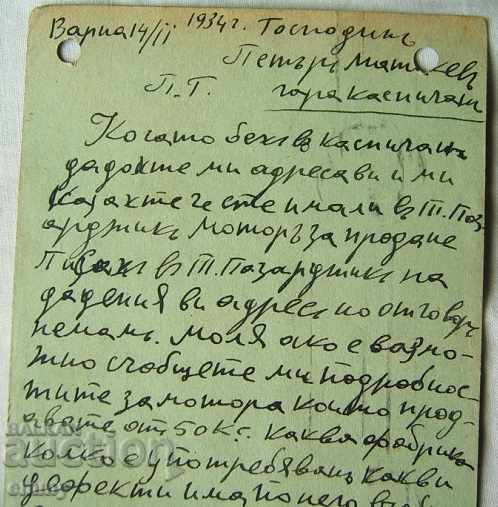 Варна 14/II 1934 г. Господинъ
Петъръ
П.Т. гара Каспичанъ
Когато бехъ въ Каспичанъ
дадохте ми адреса ви и ми
казахте че сте имали въ Т. Паз-
арджикъ моторъ за продане
Писахъ въ Т. Пазарджикъ на
дадения ви адресъ но отговоръ
немамъ. Моля ако е възмо-
жно съобщете ми подробнос-
тите за мотора който прод-
авате от 50 кс. каква фабрика
колко е употребяванъ какви
дефекти има по него